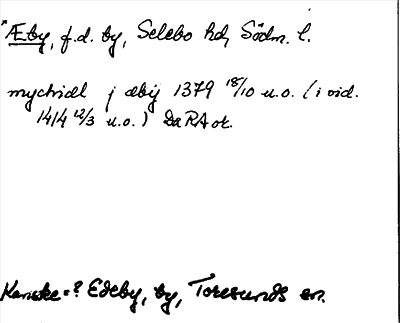 *Æby, f.d. by, Selebo hd, Södm. l.
mychiæl j æby 1379 18/10 u.o. (i vid.
1414 12/3 u.o.) DaRA or.
Kanske =? Edeby, by, Toresunds sn.